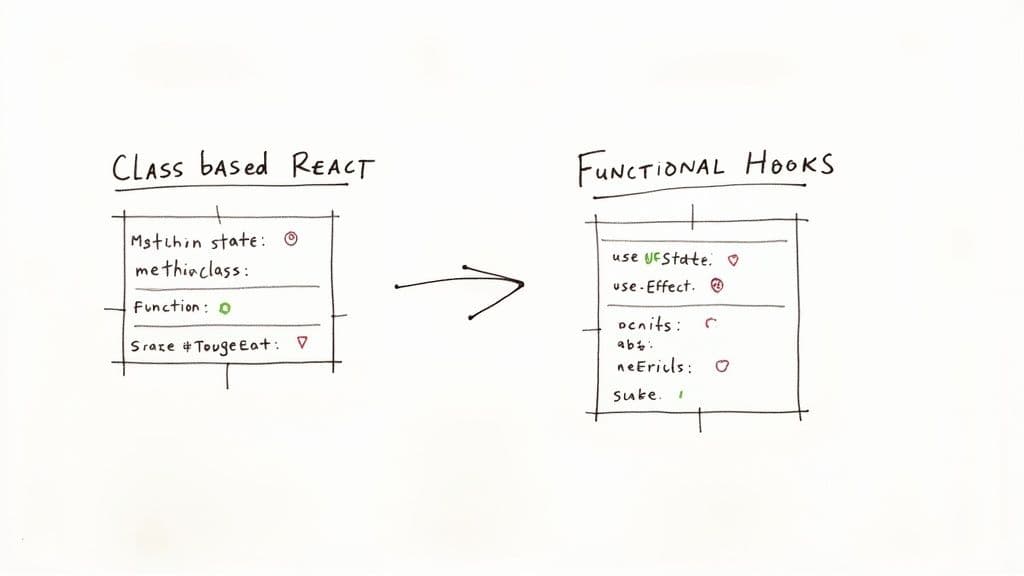 CLASS based REACT
Mstchin state:
methinclass:
Function:
Srare #TougeEat:
FUNCTIONAL HOOKS
use UFState.
use-Effect.
ocnits:
abt:
neEricls:
Suke.